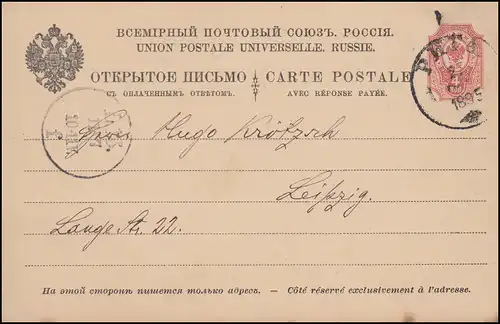 ВСЕМІРНЫЙ ПОЧТОВЫЙ СОЮЗЪ. РОССІЯ.
UNION POSTALE UNIVERSELLE. RUSSIE.
ОТКРЫТОЕ ПИСЬМО
CARTE POSTALE
СЪ ОПЛАЧЕННЫМЪ ОТВѢТОМЪ.
AVEC RÉPONSE PAYÉE.
1895
Hugo Krötzsch
Leipzig.
Lange Str. 22.
На этой сторонѣ пишется только адресъ. — Côté réservé exclusivement à l'adresse.